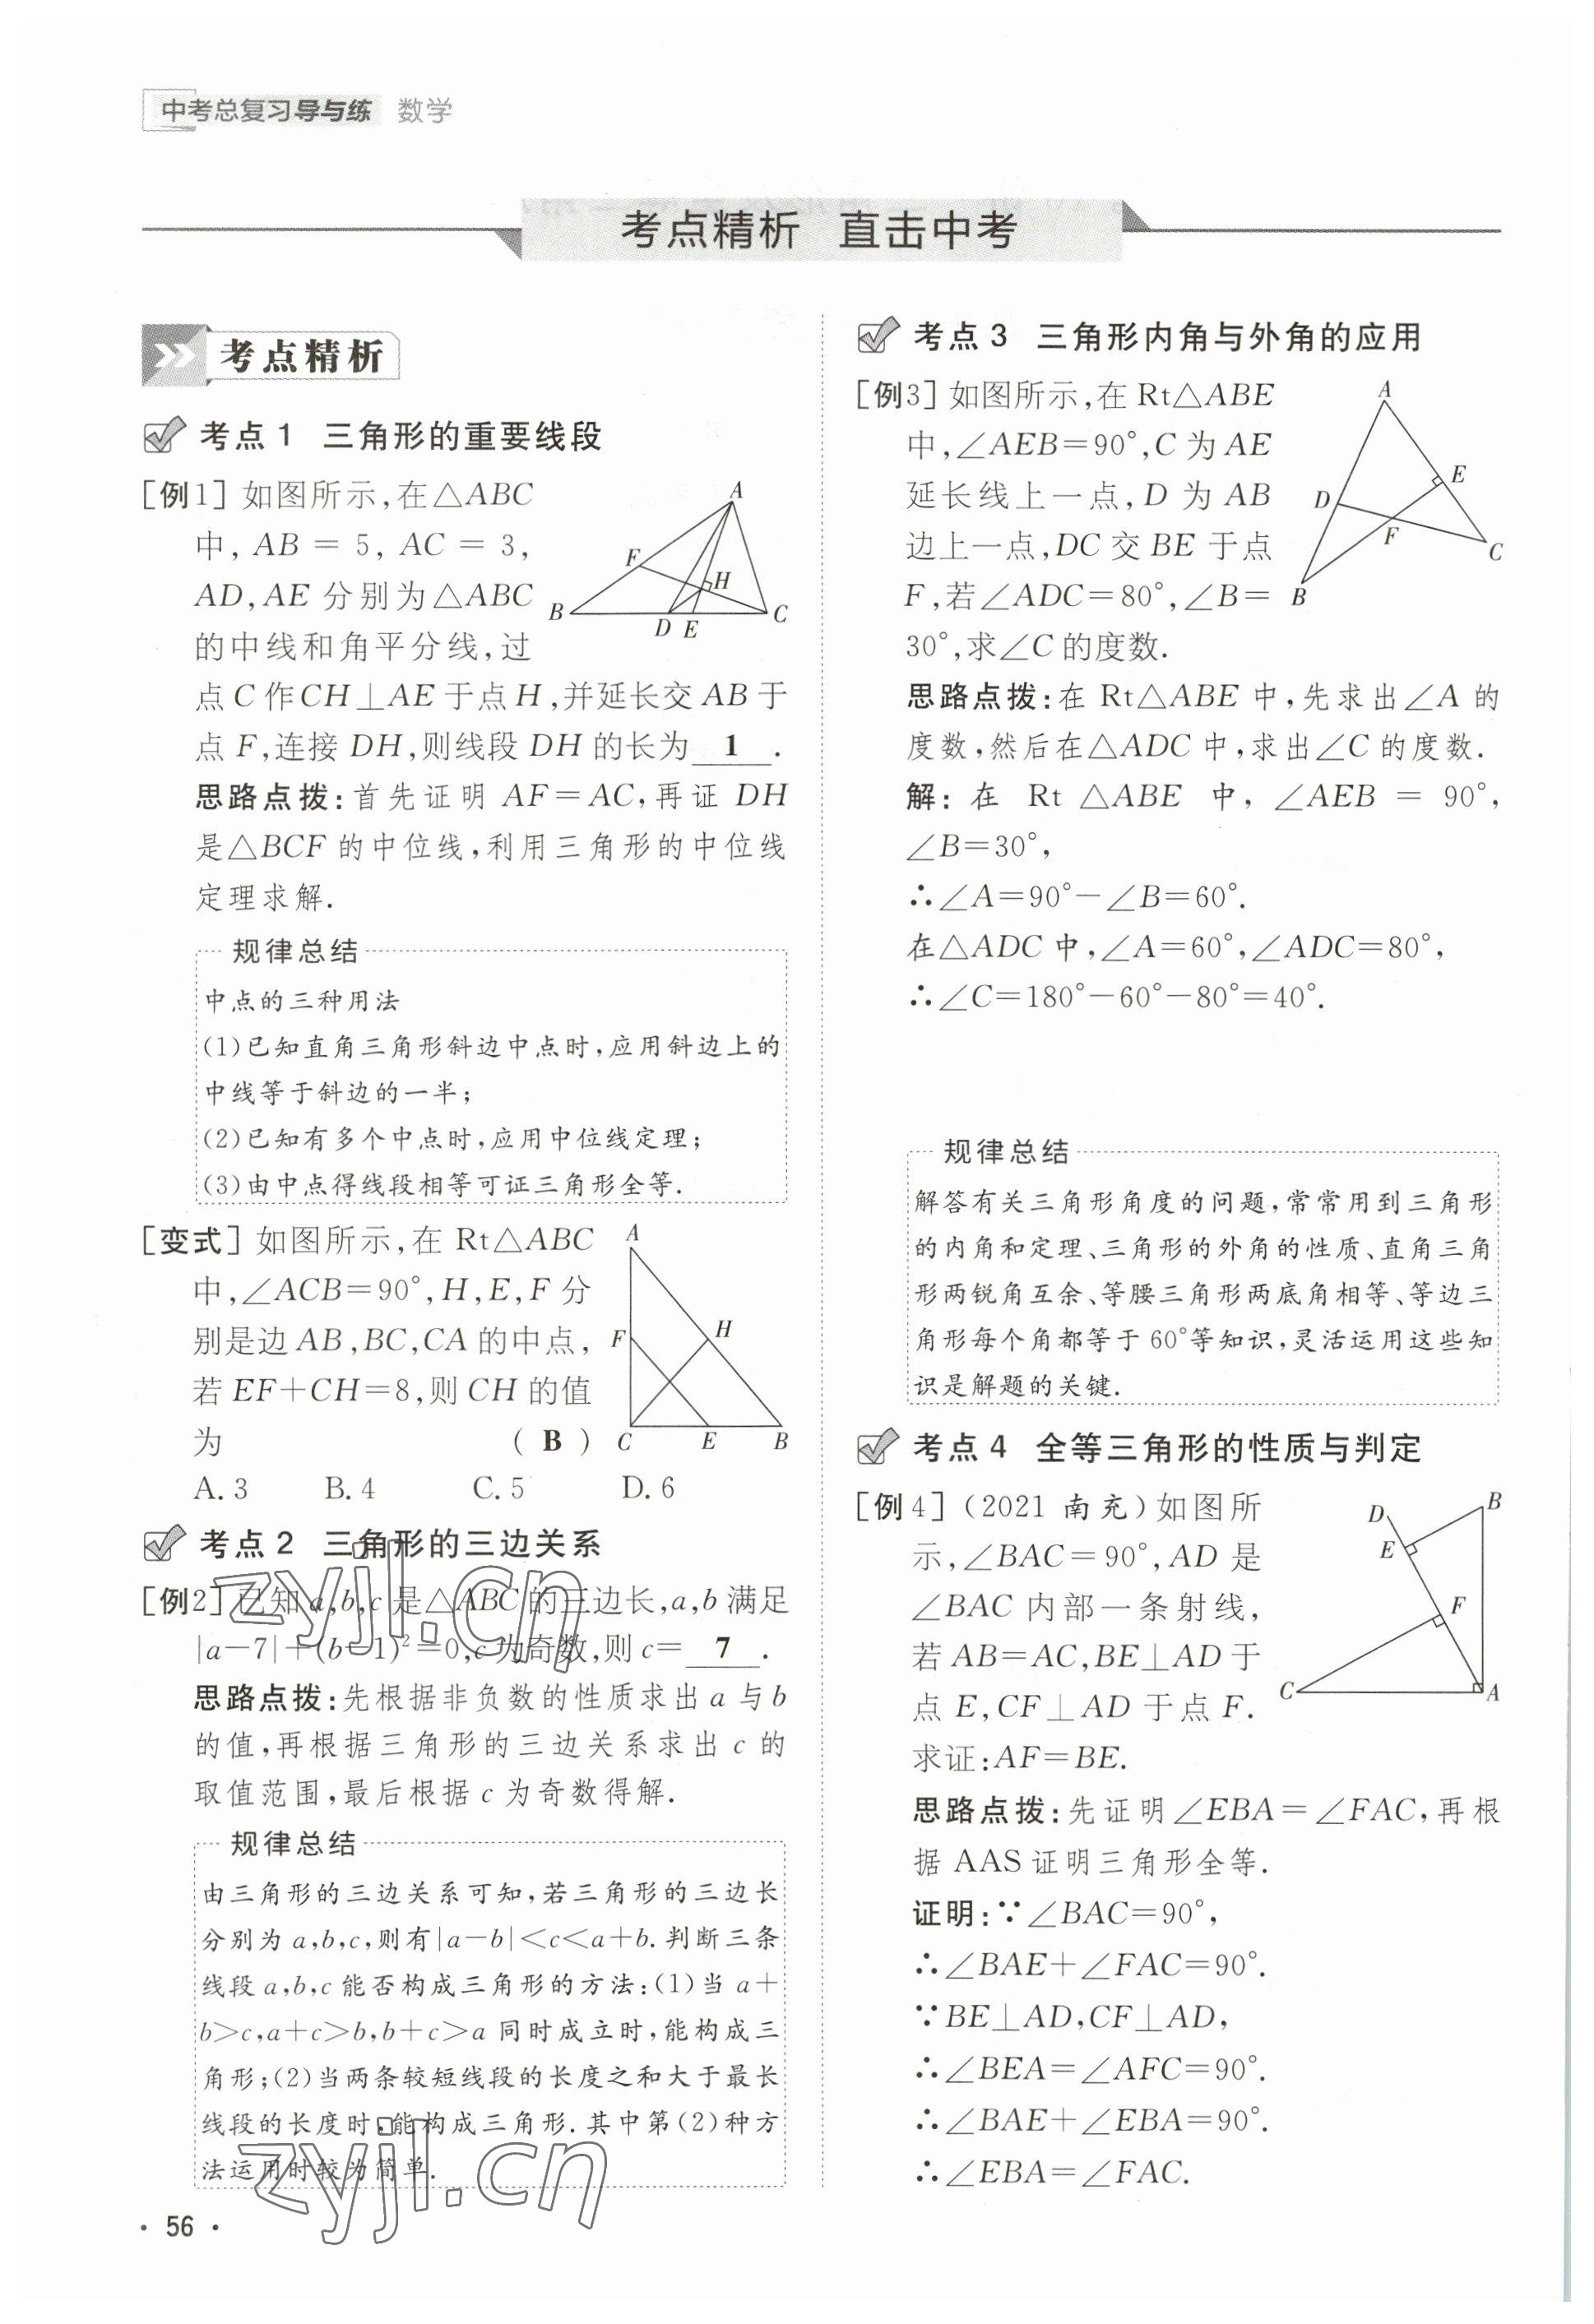 中考总复习导与练 数学
考点精析 直击中考
考点精析
考点1 三角形的重要线段
[例1]如图所示,在△ABC
中, AB = 5, AC = 3,
AD,AE 分别为△ABC
的中线和角平分线,过
点C作CH⊥AE于点H,并延长交AB于
点F,连接DH,则线段DH的长为 1 .
A
F
H
B
D
E
C
思路点拨:首先证明 AF=AC,再证 DH
是△BCF的中位线,利用三角形的中位线
定理求解.
规律总结
中点的三种用法
(1)已知直角三角形斜边中点时,应用斜边上的
中线等于斜边的一半;
(2)已知有多个中点时,应用中位线定理;
(3)由中点得线段相等可证三角形全等.
[变式]如图所示,在 Rt△ABC
中,∠ACB=90°,H,E,F分
别是边AB,BC,CA的中点,
若EF+CH=8,则CH的值
为 ( B )
A
F
H
C
E
B
A.3 B.4 C.5 D.6
考点2 三角形的三边关系
[例2]已知a,b,c是△ABC的三边长,a,b满足
|a-7|+(b-1)²=0,c为奇数,则c= 7 .
思路点拨:先根据非负数的性质求出a与b
的值,再根据三角形的三边关系求出c的
取值范围,最后根据c为奇数得解.
规律总结
由三角形的三边关系可知,若三角形的三边长
分别为a,b,c,则有|a-b|<c<a+b.判断三条
线段a,b,c能否构成三角形的方法:(1)当a+
b>c,a+c>b,b+c>a同时成立时,能构成三
角形;(2)当两条较短线段的长度之和大于最长
线段的长度时,能构成三角形.其中第(2)种方
法运用时较为简单.
zyjl.cn
zyjl.cn
· 56 ·
考点3 三角形内角与外角的应用
[例3]如图所示,在Rt△ABE
中,∠AEB=90°,C为AE
延长线上一点,D为AB
边上一点,DC交BE于点
F,若∠ADC=80°,∠B=
30°,求∠C的度数.
A
E
D
F
C
B
思路点拨:在Rt△ABE中,先求出∠A的
度数,然后在△ADC中,求出∠C的度数.
解: 在 Rt △ABE 中, ∠AEB = 90°,
∠B=30°,
∴∠A=90°-∠B=60°.
在△ADC中,∠A=60°,∠ADC=80°,
∴∠C=180°-60°-80°=40°.
规律总结
解答有关三角形角度的问题,常常用到三角形
的内角和定理、三角形的外角的性质、直角三角
形两锐角互余、等腰三角形两底角相等、等边三
角形每个角都等于60°等知识,灵活运用这些知
识是解题的关键.
考点4 全等三角形的性质与判定
[例4](2021南充)如图所
示,∠BAC=90°,AD是
∠BAC内部一条射线,
若AB=AC,BE⊥AD于
点E,CF⊥AD于点F.
求证:AF=BE.
D
B
E
F
C
A
思路点拨:先证明∠EBA=∠FAC,再根
据AAS证明三角形全等.
证明:∵∠BAC=90°,
∴∠BAE+∠FAC=90°.
∵BE⊥AD,CF⊥AD,
∴∠BEA=∠AFC=90°.
∴∠BAE+∠EBA=90°.
∴∠EBA=∠FAC.